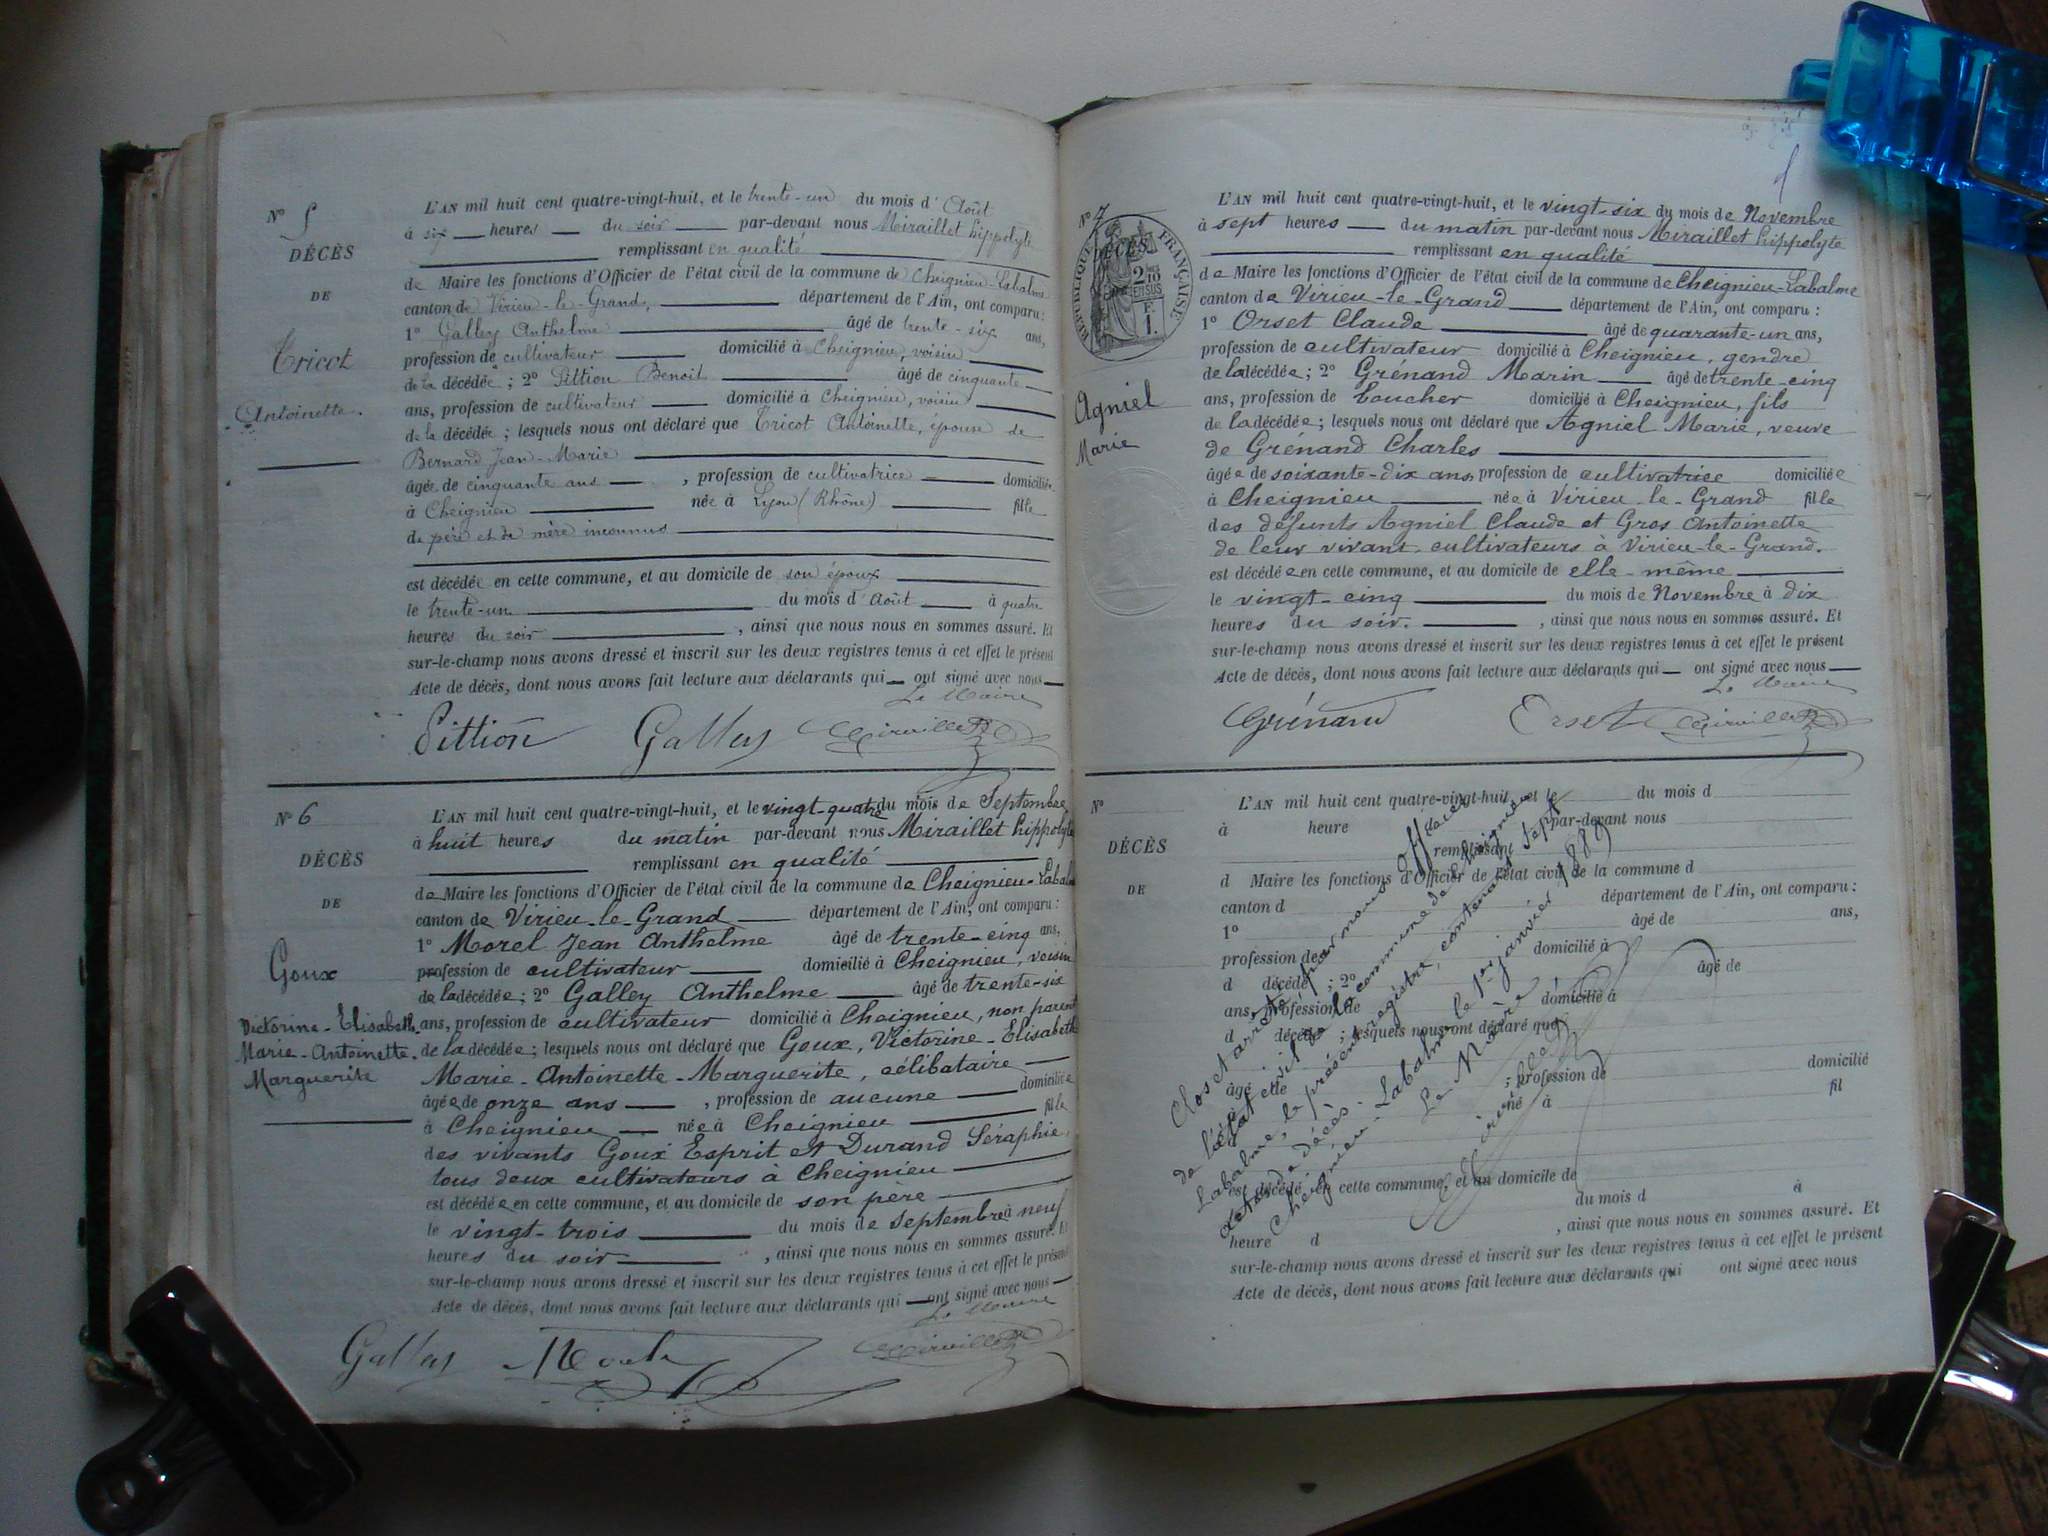 N° 5
DÉCÈS
DE
Tricot
Antoinette.
L'AN mil huit cent quatre-vingt-huit, et le trente-un du mois d'Août
à six heures du soir par-devant nous Miraillet hippolyte
remplissant en qualité
de Maire les fonctions d'Officier de l'état civil de la commune de Cheignieu-Labalme
canton de Virieu-le-Grand, département de l'Ain, ont comparu :
1° Galley Anthelme âgé de trente-six ans,
profession de cultivateur domicilié à Cheignieu, voisin
de la décédée ; 2° Pittion Benoit âgé de cinquante
ans, profession de cultivateur domicilié à Cheignieu, voisin
de la décédée ; lesquels nous ont déclaré que Tricot Antoinette, épouse de
Bernard Jean-Marie
âgée de cinquante ans , profession de cultivatrice domiciliée
à Cheignieu née à Lyon (Rhône) fille
de père et de mère inconnus
est décédée en cette commune, et au domicile de son époux
le trente-un du mois d'Août à quatre
heures du soir , ainsi que nous nous en sommes assuré. Et
sur-le-champ nous avons dressé et inscrit sur les deux registres tenus à cet effet le présent
Acte de décès, dont nous avons fait lecture aux déclarants qui ont signé avec nous
Le Maire
Pittion Galley Miraillet
N° 6
DÉCÈS
DE
Goux
Victorine-Elisabeth
Marie-Antoinette.
Marguerite
L'AN mil huit cent quatre-vingt-huit, et le vingt-quatre du mois de Septembre
à huit heures du matin par-devant nous Miraillet hippolyte
remplissant en qualité
de Maire les fonctions d'Officier de l'état civil de la commune de Cheignieu-Labalme
canton de Virieu-le-Grand département de l'Ain, ont comparu :
1° Morel Jean Anthelme âgé de trente-cinq ans,
profession de cultivateur domicilié à Cheignieu, voisin
de la décédée ; 2° Galley Anthelme âgé de trente-six
ans, profession de cultivateur domicilié à Cheignieu, non parent
de la décédée ; lesquels nous ont déclaré que Goux, Victorine-Elisabeth
Marie-Antoinette-Marguerite, célibataire
âgée de onze ans , profession de aucune domiciliée
à Cheignieu née à Cheignieu fille
des vivants Goux Esprit et Durand Séraphie,
tous deux cultivateurs à Cheignieu
est décédée en cette commune, et au domicile de son père
le vingt-trois du mois de Septembre à neuf
heures du soir , ainsi que nous nous en sommes assuré. Et
sur-le-champ nous avons dressé et inscrit sur les deux registres tenus à cet effet le présent
Acte de décès, dont nous avons fait lecture aux déclarants qui ont signé avec nous
Le Maire
Galley Morel Miraillet
N° 7
DÉCÈS
RÉPUBLIQUE FRANÇAISE
2/10 EN SUS
F.
1.
Agniel
Marie
L'AN mil huit cent quatre-vingt-huit, et le vingt-six du mois de Novembre
à sept heures du matin par-devant nous Miraillet hippolyte
remplissant en qualité
de Maire les fonctions d'Officier de l'état civil de la commune de Cheignieu-Labalme
canton de Virieu-le-Grand département de l'Ain, ont comparu :
1° Orset Claude âgé de quarante-un ans,
profession de cultivateur domicilié à Cheignieu, gendre
de la décédée ; 2° Grénand Marin âgé de trente-cinq
ans, profession de boucher domicilié à Cheignieu, fils
de la décédée ; lesquels nous ont déclaré que Agniel Marie, veuve
de Grénand Charles
âgée de soixante-dix ans, profession de cultivatrice domiciliée
à Cheignieu née à Virieu-le-Grand fille
des défunts Agniel Claude et Gros Antoinette
de leur vivant cultivateurs à Virieu-le-Grand.
est décédée en cette commune, et au domicile de elle-même
le vingt-cinq du mois de Novembre à dix
heures du soir. , ainsi que nous nous en sommes assuré. Et
sur-le-champ nous avons dressé et inscrit sur les deux registres tenus à cet effet le présent
Acte de décès, dont nous avons fait lecture aux déclarants qui ont signé avec nous
Le Maire
Grénand Orset Miraillet
N°
DÉCÈS
DE
L'AN mil huit cent quatre-vingt-huit, et le du mois d
à heure par-devant nous
remplissant
d Maire les fonctions d'Officier de l'état civil de la commune d
canton d département de l'Ain, ont comparu :
1° âgé de ans,
profession de domicilié à
d décédé ; 2° âgé de
ans, profession de domicilié à
d décédé ; lesquels nous ont déclaré que
âgé de ; profession de domicilié
à né à fil
est décédé en cette commune, et au domicile de
le du mois d à
heure d , ainsi que nous nous en sommes assuré. Et
sur-le-champ nous avons dressé et inscrit sur les deux registres tenus à cet effet le présent
Acte de décès, dont nous avons fait lecture aux déclarants qui ont signé avec nous
Clos et arrêté par nous Officier
de l'état civil de la commune de Cheignieu
Labalme, le présent registre, contenant sept
actes de décès.
Cheignieu-Labalme le 1er janvier 1889
Le Maire
Miraillet